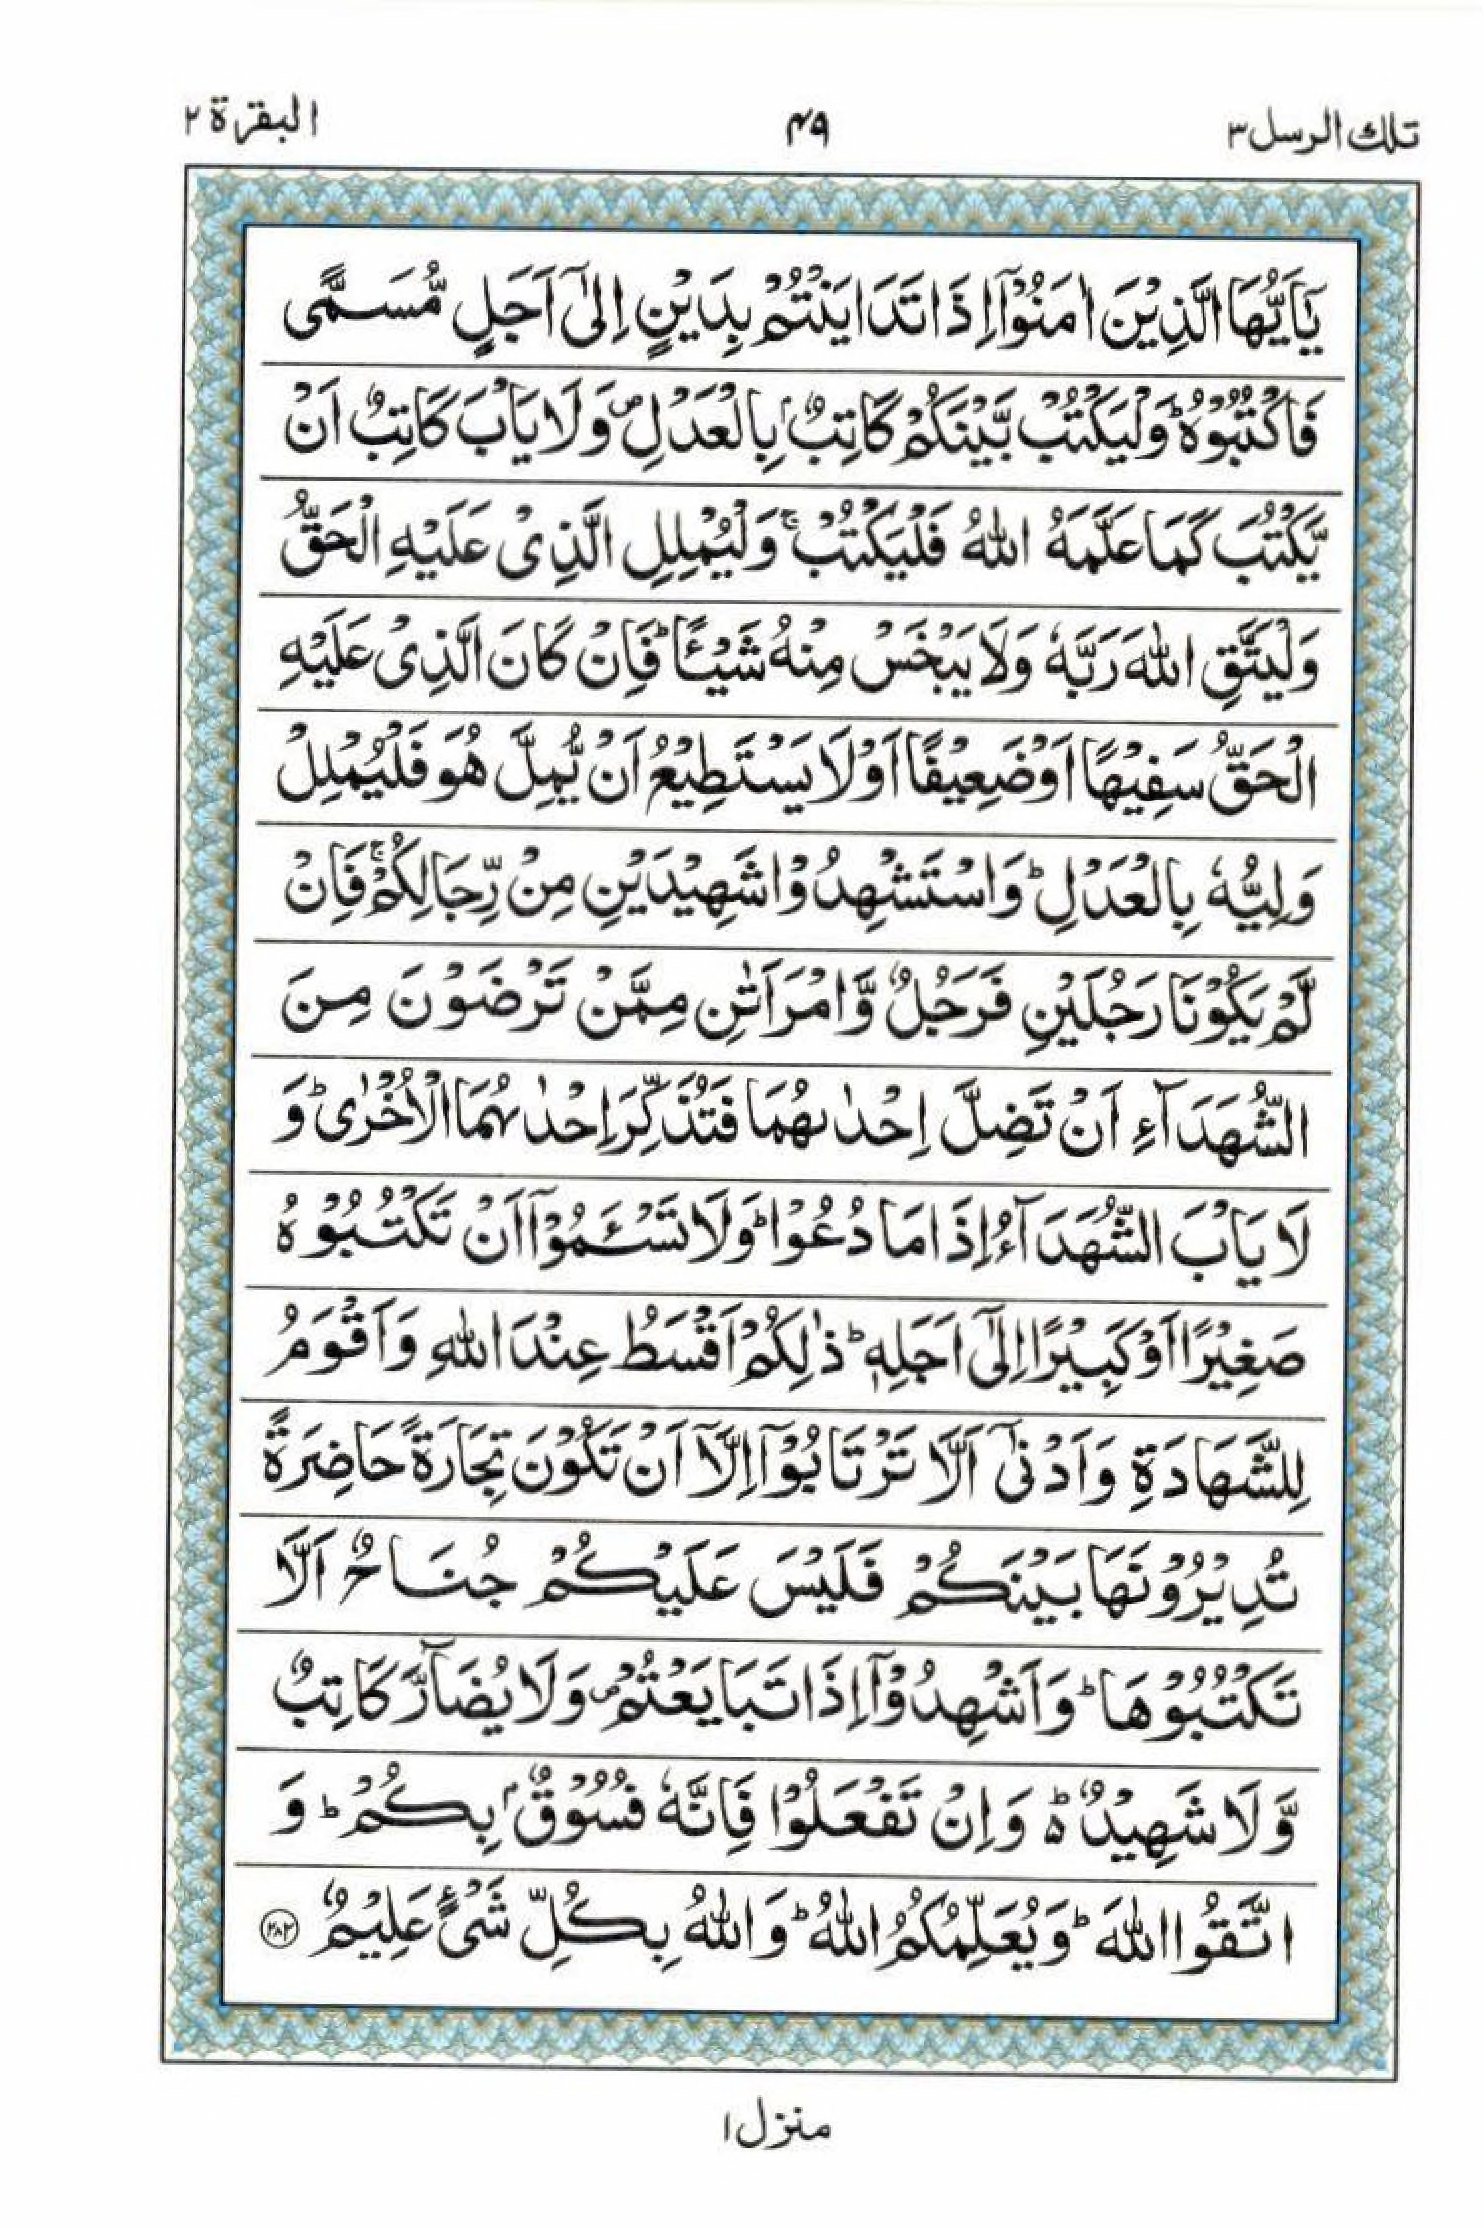 تلك الرسل ٣ ٤٩ البقرة ٢
يٰۤاَيُّهَا الَّذِيْنَ اٰمَنُوْۤا اِذَا تَدَايَنْتُمْ بِدَيْنٍ اِلٰۤى اَجَلٍ مُّسَمًّى
فَاكْتُبُوْهُ ؕ وَلْيَكْتُبْ بَّيْنَكُمْ كَاتِبٌۢ بِالْعَدْلِ ۪ وَلَا يَاْبَ كَاتِبٌ اَنْ
يَّكْتُبَ كَمَا عَلَّمَهُ اللّٰهُ فَلْيَكْتُبْ ۚ وَلْيُمْلِلِ الَّذِيْ عَلَيْهِ الْحَقُّ
وَلْيَتَّقِ اللّٰهَ رَبَّهٗ وَلَا يَبْخَسْ مِنْهُ شَيْـًٔا ؕ فَاِنْ كَانَ الَّذِيْ عَلَيْهِ
الْحَقُّ سَفِيْهًا اَوْ ضَعِيْفًا اَوْ لَا يَسْتَطِيْعُ اَنْ يُّمِلَّ هُوَ فَلْيُمْلِلْ
وَلِيُّهٗ بِالْعَدْلِ ؕ وَاسْتَشْهِدُوْا شَهِيْدَيْنِ مِنْ رِّجَالِكُمْ ۚ فَاِنْ
لَّمْ يَكُوْنَا رَجُلَيْنِ فَرَجُلٌ وَّامْرَاَتٰنِ مِمَّنْ تَرْضَوْنَ مِنَ
الشُّهَدَآءِ اَنْ تَضِلَّ اِحْدٰىهُمَا فَتُذَكِّرَ اِحْدٰىهُمَا الْاُخْرٰى ؕ وَ
لَا يَاْبَ الشُّهَدَآءُ اِذَا مَا دُعُوْا ؕ وَلَا تَسْـَٔمُوْۤا اَنْ تَكْتُبُوْهُ
صَغِيْرًا اَوْ كَبِيْرًا اِلٰۤى اَجَلِهٖ ؕ ذٰلِكُمْ اَقْسَطُ عِنْدَ اللّٰهِ وَاَقْوَمُ
لِلشَّهَادَةِ وَاَدْنٰۤى اَلَّا تَرْتَابُوْۤا اِلَّاۤ اَنْ تَكُوْنَ تِجَارَةً حَاضِرَةً
تُدِيْرُوْنَهَا بَيْنَكُمْ فَلَيْسَ عَلَيْكُمْ جُنَاحٌ اَلَّا
تَكْتُبُوْهَا ؕ وَاَشْهِدُوْۤا اِذَا تَبَايَعْتُمْ ۪ وَلَا يُضَآرَّ كَاتِبٌ
وَّلَا شَهِيْدٌ ۬ؕ وَاِنْ تَفْعَلُوْا فَاِنَّهٗ فُسُوْقٌۢ بِكُمْ ؕ وَ
اتَّقُوا اللّٰهَ ؕ وَيُعَلِّمُكُمُ اللّٰهُ ؕ وَاللّٰهُ بِكُلِّ شَيْءٍ عَلِيْمٌ ۲۸۲
منزل ١